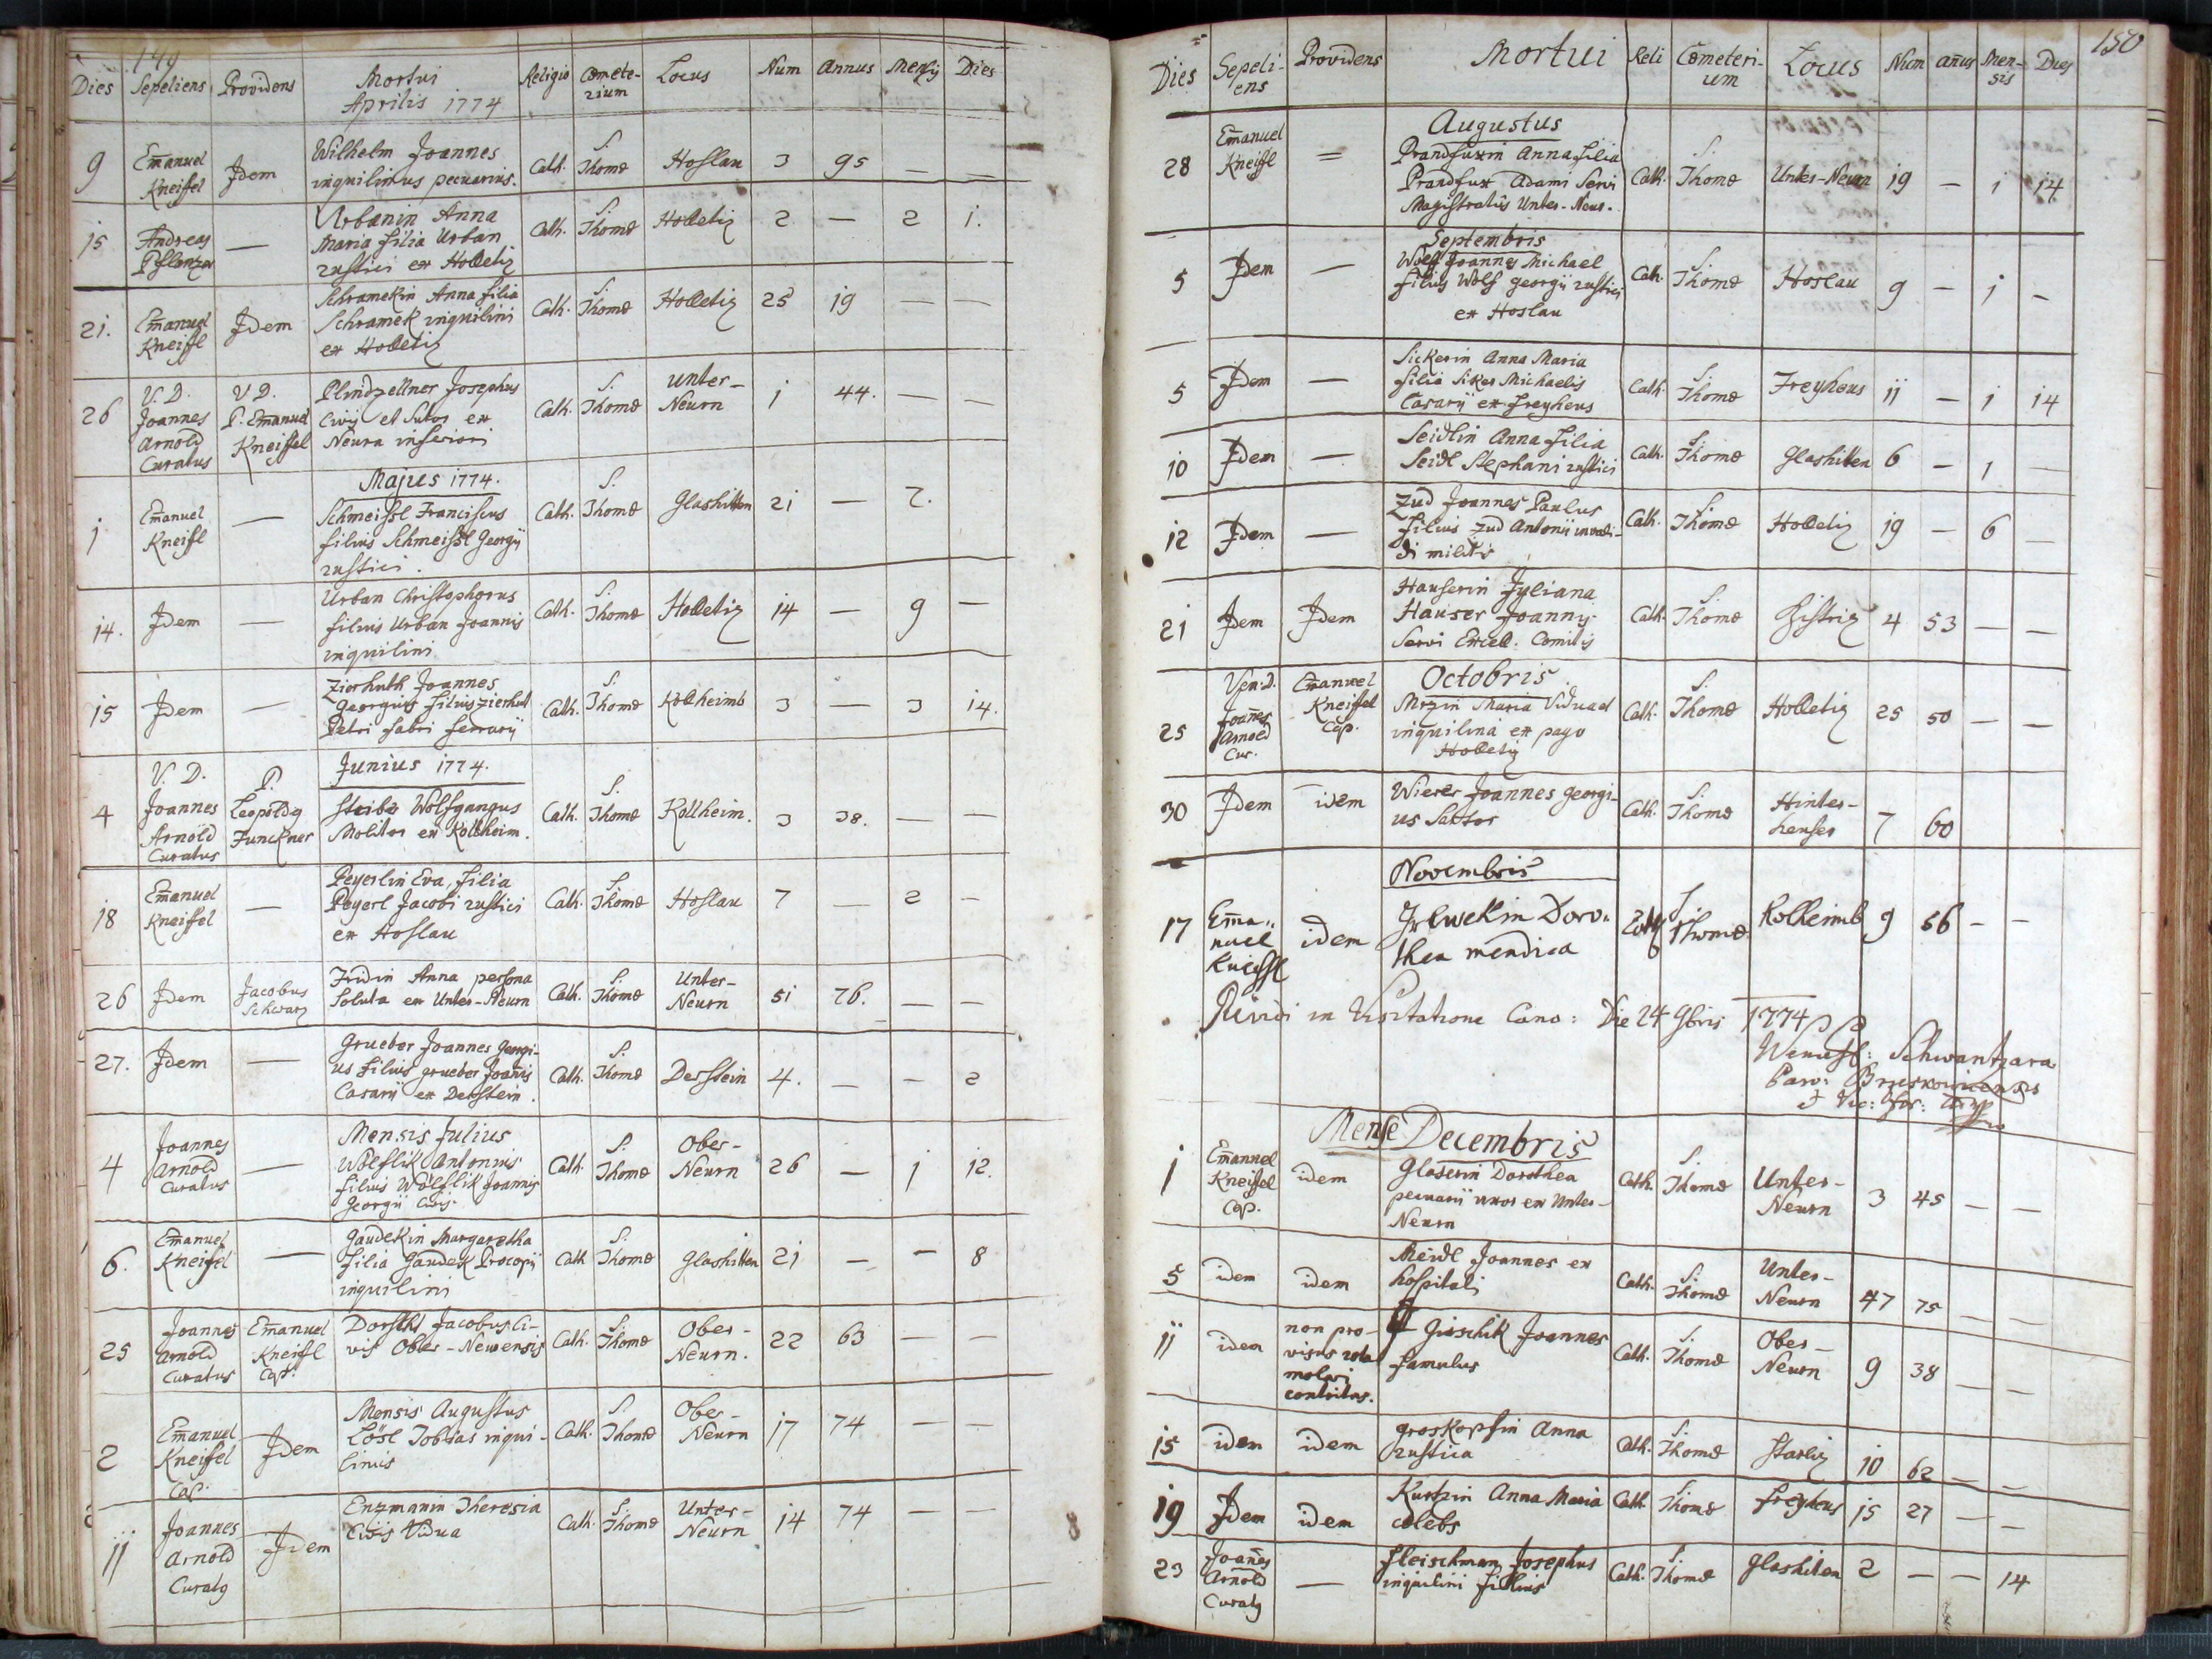 149
Dies Sepeliens Providens Mortui Religio Cœmeterium Locus Num Annus Mensis Dies
Aprilis 1774
9 Emanuel Kneissel Idem Wilhelm Joannes Cath. S. Thomæ Hoslau 3 95 — —
inquilinus pecuarius.
15 Andreas — Urbanin Anna Cath. S. Thomæ Holletiz 2 — 2 1.
Maria filia Urban
rustici ex Holletiz
21. Emanuel Kneissl Idem Schramekin Anna filia Cath. S. Thomæ Holletiz 25 19 — —
Schramek inquilini
ex Holletiz
26 V. D. Joannes Arnold Curatus V D. P. Emanuel Kneissel Plindzellner Josephus Cath. S. Thomæ Unter-Neurn 1 44. — —
Civis et Sutor ex
Neurn inferiori
Majus 1774.
1 Emanuel Kneissl — Schmeissl Franciscus Cath. S. Thomæ Glashitten 21 — 2.
filius Schmeissl Georgij
rustici.
14. Idem — Urban Christophorus Cath. S. Thomæ Holletiz 14 — 9 —
filius Urban Joannis
inquilini
15 Idem — Zierhuth Joannes Cath. S. Thomæ Kollheimb 3 — 3 14.
Georgius filius Zierhut
Petri fabri ferrarij
Junius 1774.
4 V. D. Joannes Arnold Curatus P. Leopoldq Funckner Steibe Wolfgangus Cath. S. Thomæ Kollheim. 3 38. — —
Molitor ex Kollheim.
18 Emanuel Kneissel — Peyerlin Eva, filia Cath. S. Thomæ Hoslau 7 — 2 —
Peyerl Jacobi rustici
ex Hoslau
26 Idem Jacobus Schwarz Fridin Anna persona Cath. S. Thomæ Unter-Neurn 51 76. — —
soluta ex Unter-Neurn
27. Idem — Grueber Joannes Georgi- Cath. S. Thomæ Derstein 4. — — 2
us filius grueber Joanis
Casarij ex Derstein.
Mensis Julius
4 Joannes Arnold Curatus — Wölflik Antonius Cath. S. Thomæ Ober-Neurn 26 — 1 12.
filius Wölflik Joannis
Georgij Civis
6. Emanuel Kneissel — Gaudekin Margaretha Cath S. Thomæ Glashitten 21 — — 8
filia Gaudek Procopij
inquilini
25 Joannes Arnold Curatus Emanuel Kneissl Cap. Jacobus Ci- Cath. S. Thomæ Ober-Neurn. 22 63 — —
vis Ober-Neurensis
Mensis Augustus
2 Emanuel Kneissel Cap. Idem Lösl Tobias inqui- Cath. S. Thomæ Ober-Neurn 17 74 — —
linus
11 Joannes Arnold Curatq Idem Enzmanin Theresia Cath. S. Thomæ Unter-Neurn 14 74 — —
Civis Vidua
150
Dies Sepeliens Providens Mortui Reli Cœmeterium Locus Num añus Mensis Dies
Augustus
28 Emanuel Kneissl = Prandfuxin Anna filia Cath. S. Thomæ Unter-Neurn 19 — 1 14
Prandfux Adami Servi
Magistratûs Unter-Neur.
Septembris
5 Idem — Wolf Joannes Michael Cath. S. Thomæ Hoslau 9 — 1 —
filius Wolf Georgij rustici
ex Hoslau
5 Idem — Sickerin Anna Maria Cath. S. Thomæ Freyheus 11 — 1 14
filia Siker Michaelis
Casarij ex Freyheus
10 Idem — Seidlin Anna filia Cath. S. Thomæ Glashitten 6 — 1 —
Seidl Stephani rustici
12 Idem — Zud Joannes Paulus Cath. S. Thomæ Holletiz 19 — 6 —
filius Zud Antonij invali-
di militis
21 Idem Idem Hauserin Juliana Cath. S. Thomæ Bistriz 4 53 — —
Hauser Joannis
Servi Excell. Comitis
Octobris
25 Ven. D. Joañes Arnold Cur. Emanuel Kneissel Cap. Maria Cath. S. Thomæ Holletiz 25 50 — —
inquilina ex pago
Holletiz
30 Idem idem Wierer Joannes Georgi- Cath. S. Thomæ Hinter-heuser 7 60
us Sartor
Novembris
17 Emanuel Kneissl idem Doro- Cath S. Thomæ Kolheimb 9 56 — —
thea mendica
Revidi in Visitatione Cano: Die 24 9bris 1774
Wencesl: Schwantzara
Mense Decembris
1 Emanuel Kneissel Cap. idem Glaserin Dorothea Cath. S. Thomæ Unter-Neurn 3 45 — —
pecuarij uxor ex Unter-
Neurn
5 idem idem Meidl Joannes ex Cath. S. Thomæ Unter-Neurn 47 75 — —
hospitali
11 idem non provisus rota molari contritus. Gieschik Joannes Cath. S. Thomæ Ober-Neurn 9 38 — —
famulus
15 idem idem Groskopfin Anna Cath. S. Thomæ Starliz 10 62 — —
rustica
19 Idem idem Kurtzin Anna Maria Cath. S. Thomæ Freyheus 15 27 — —
cœlebs
23 Joañes Arnold Curatq — Fleischman Josephus Cath. S. Thomæ Glashiten 2 — — 14
inquilini filius